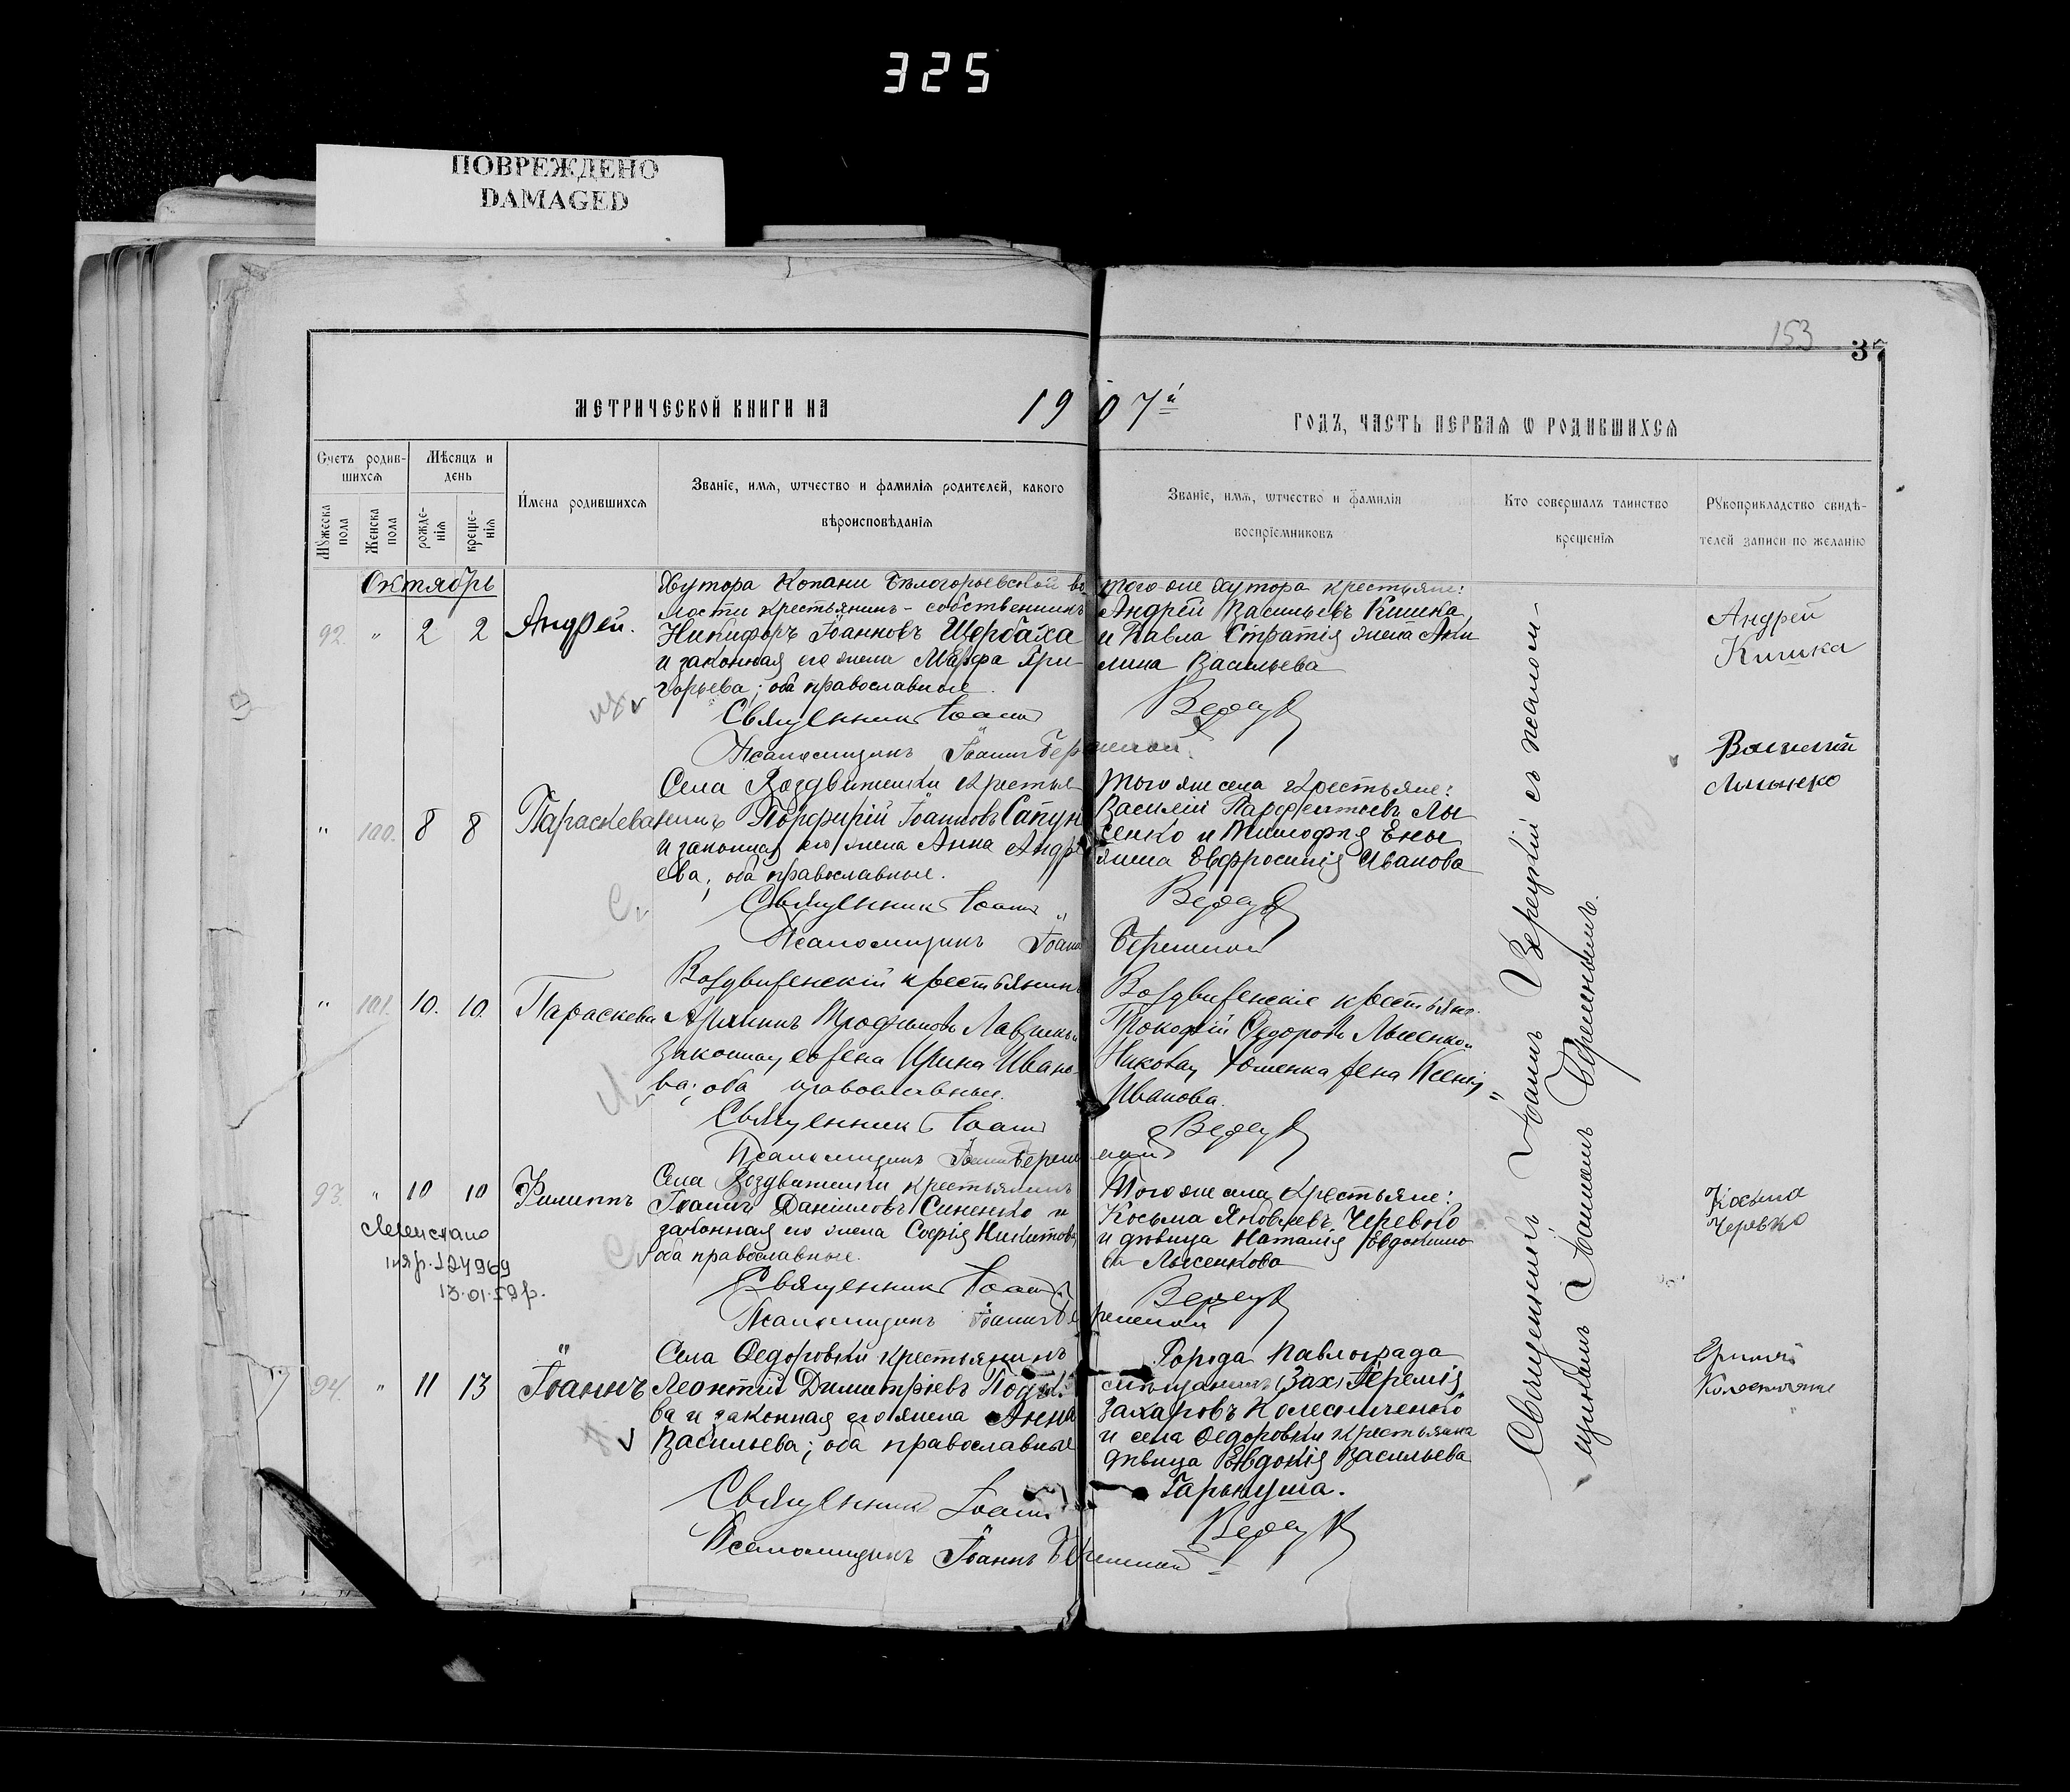 325
ПОВРЕЖДЕНО
DAMAGED
153
37
МЕТРИЧЕСКОЙ КНИГИ НА
1907й
ГОДЪ, ЧАСТЬ ПЕРВАЯ Ѡ РОДИВШИХСЯ
Счетъ родив-
шихсѧ
Мѣсяцъ и
день
Мꙋжеска
пола
Женска
пола
рожде-
нїѧ
креще-
нїѧ
Имена родившихсѧ
Званїе, имѧ, ѡтчество и фамилїѧ родителей, какого
вѣроисповѣданїѧ
Званїе, имѧ, ѡтчество и фамилїѧ
воспрїемниковъ
Кто совершалъ таинство
крещенїѧ
Рꙋкоприкладство свидѣ-
телей записи по желанїю
Октябрь
92. " 2 2 Андрей.
Хутора Копани Бѣлогорьевской во
лости крестьянинъ-собственникъ
Никифоръ Іоанновъ Щербаха
и законная его жена Марфа Гри-
горьева; оба православные.
Священникъ Іоаннъ
Псаломщикъ Іоаннъ
того же хутора крестьяне:
Андрей Васильевъ Кишка
и Павла жена Аки
лина Васильева
Верецкій
Андрей
Кишка
" 100. 8 8 Параскева
Села Воздвиженки крестья
нинъ Порфирій Іоанновъ Сапун
и законная его жена Анна Андре
ева; оба православные.
Священникъ Іоаннъ
Псаломщикъ Іоаннъ
того же села крестьяне:
Василій Парфентьевъ Лы
сенко и Тимофея
жена Евфросинія Иванова
Верецкій
Василій
" 101. 10. 10. Параскева
Воздвиженскій крестьянинъ
Трофимовъ
законная его жена Ирина Ивано
ва; оба православные.
Священникъ Іоаннъ
Псаломщикъ Іоаннъ
Воздвиженскіе крестьяне
Прокофій Федоровъ Лысенко и
Николая Хоменка жена Ксенія
Иванова.
Верецкій
93. " 10 10 Филиппъ
13.01.59р.
Села Воздвиженки крестьянинъ
Іоаннъ Даніиловъ Синенко и
законная его жена Софія Никитова
оба православные.
Священникъ Іоаннъ
Псаломщикъ Іоаннъ
Того же села крестьяне:
Косьма Яковлевъ Черевко
и дѣвица Наталія Евдокимо
ва Лысенкова
Верецкій
Косьма
Черевко
94. " 11 13 Іоаннъ
Села Федоровки крестьянинъ
Леонтій Димитріевъ
ва и законная его жена Анна
Васильева; оба православные
Священникъ Іоаннъ
Псаломщикъ Іоаннъ
Города Павлограда
мѣщанинъ (Зах) Іеремія
Захаровъ Колесниченко
и села Федоровки крестьянка
дѣвица Евдокія Васильева
Гарькуша.
Верецкій
Священникъ Іоаннъ Верецкій съ псалом-
щикомъ Іоанномъ